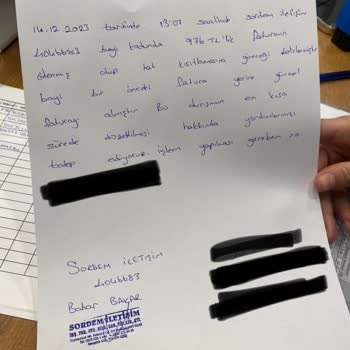 14.12.2023 tarihinde 13:07 saatinde sordem iletişim
40466683 bayi kodunda 976 TL'lik faturam
ödenmiş olup hat kısıtlamasına gireceği belirtilmiştir
bayi bir önceki fatura yerine güncel
faturayı almıştır Bu durumun en kısa
sürede düzeltilmesi hakkında yardımlarınızı
talep ediyoruz. işlem yapılması gereken no
SORDEM İLETİŞİM
40466683
Bahar BAKAR
SORDEM İLETİŞİM